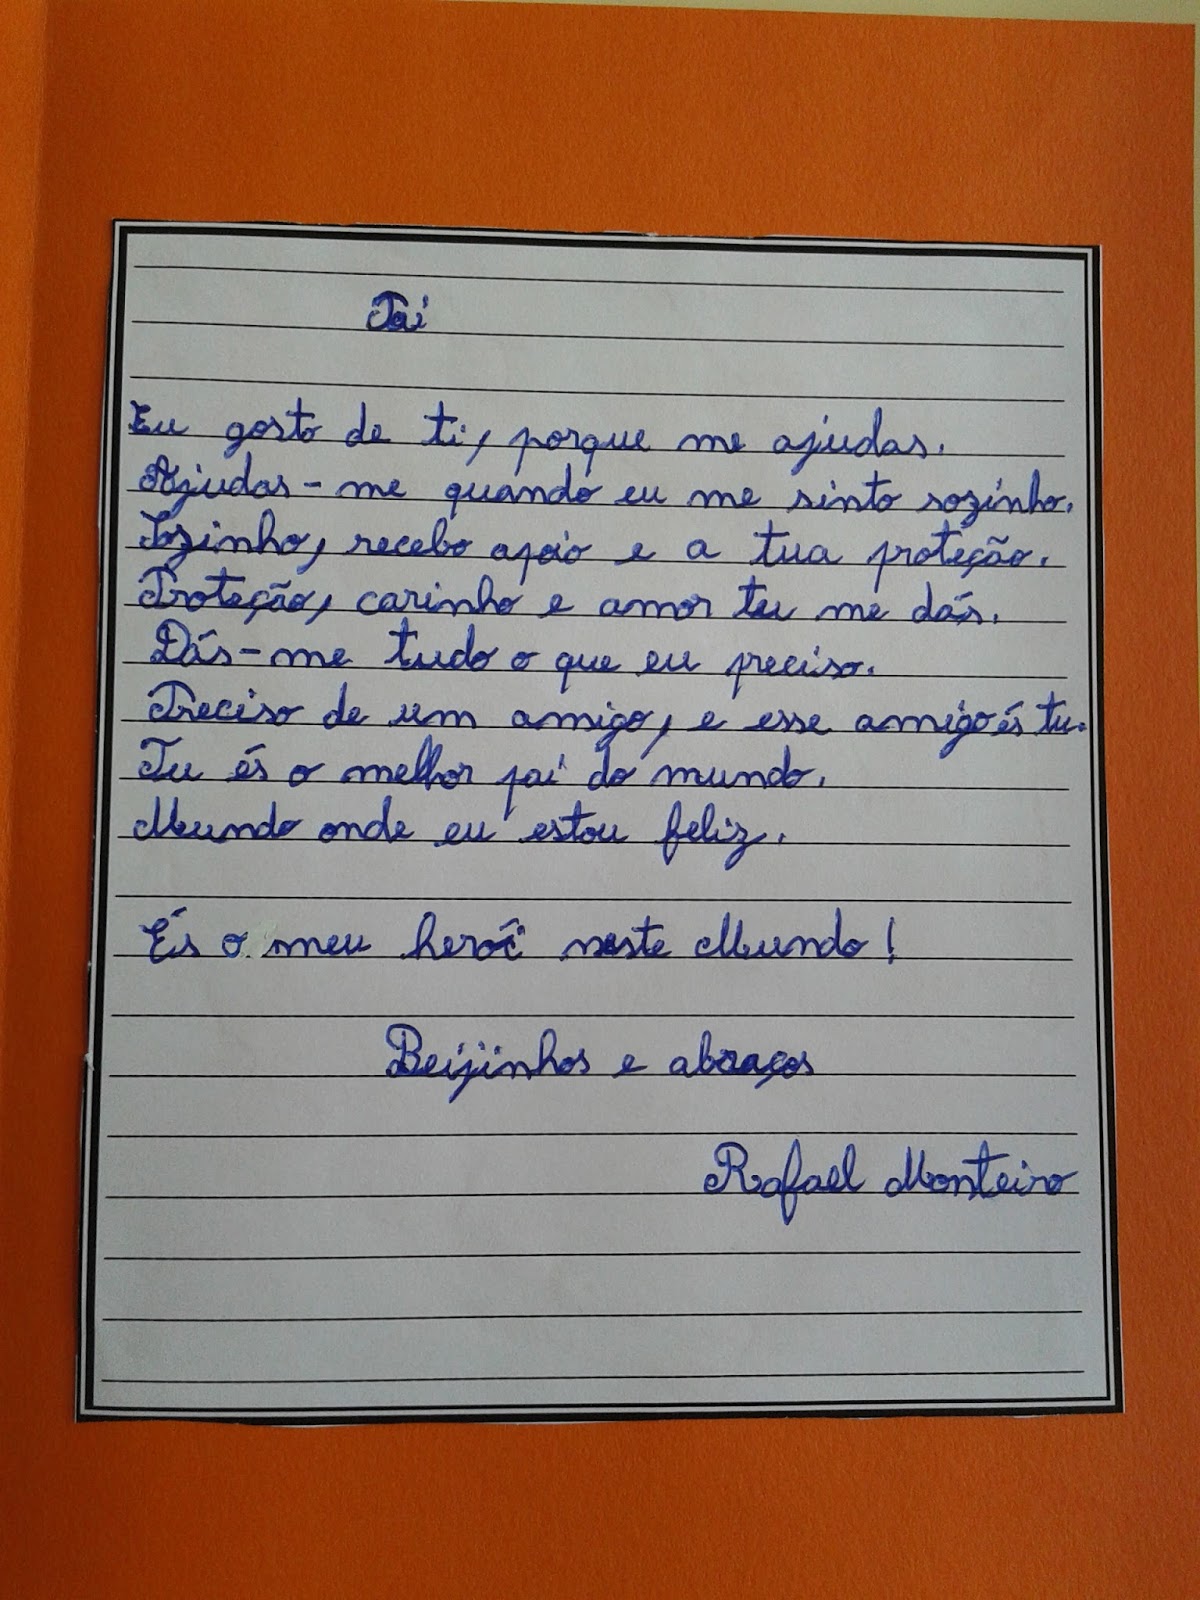 Pai
Eu gosto de ti, porque me ajudas.
Ajudas-me quando eu me sinto sozinho.
Sozinho, recebo apoio e a tua proteção.
Proteção, carinho e amor tu me dás.
Dás-me tudo o que eu preciso.
Preciso de um amigo, e esse amigo és tu.
Tu és o melhor pai do mundo.
Mundo onde eu estou feliz.
És o meu herói neste Mundo!
Beijinhos e abraços
Rafael Monteiro